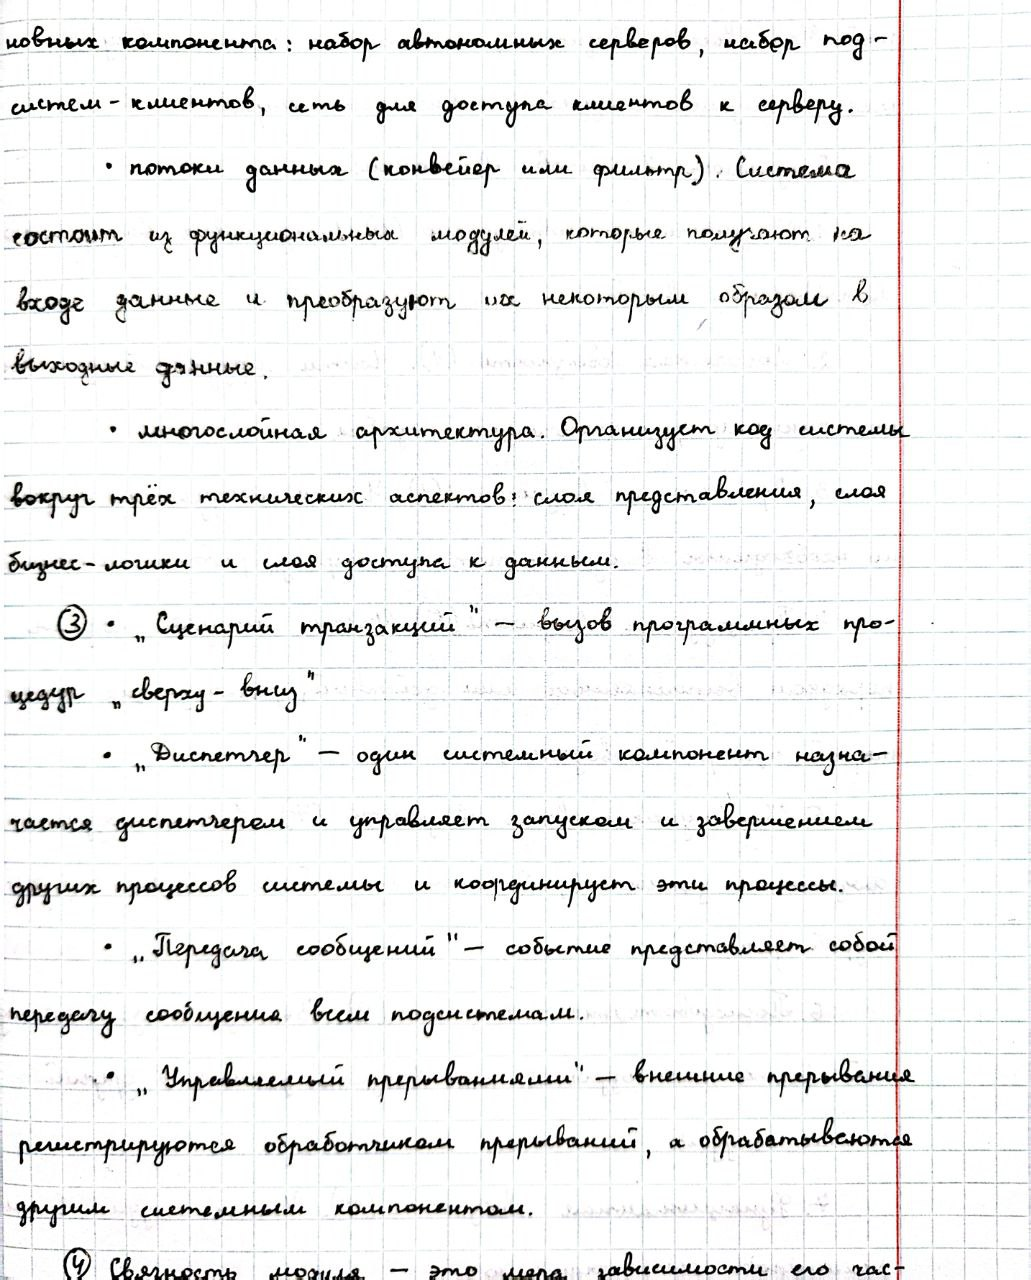 новных компонента: набор автономных серверов, набор под-
систем-клиентов, сеть для доступа клиентов к серверу.
• потоки данных (конвейер или фильтр). Система
состоит из функциональных модулей, которые получают на
входе данные и преобразуют их некоторым образом в
выходные данные.
• многослойная архитектура. Организует код системы
вокруг трёх технических аспектов: слоя представления, слоя
бизнес-логики и слоя доступа к данным.
③ • „Сценарий транзакций" — вызов программных про-
цедур „сверху-вниз"
• „Диспетчер" — один системный компонент назна-
чается диспетчером и управляет запуском и завершением
других процессов системы и координирует эти процессы.
• „Передача сообщений" — событие представляет собой
передачу сообщения всем подсистемам.
• „Управляемый прерываниями" — внешние прерывания
регистрируются обработчиком прерываний, а обрабатываются
другим системным компонентом.
④ Связность модуля — это мера зависимости его час-